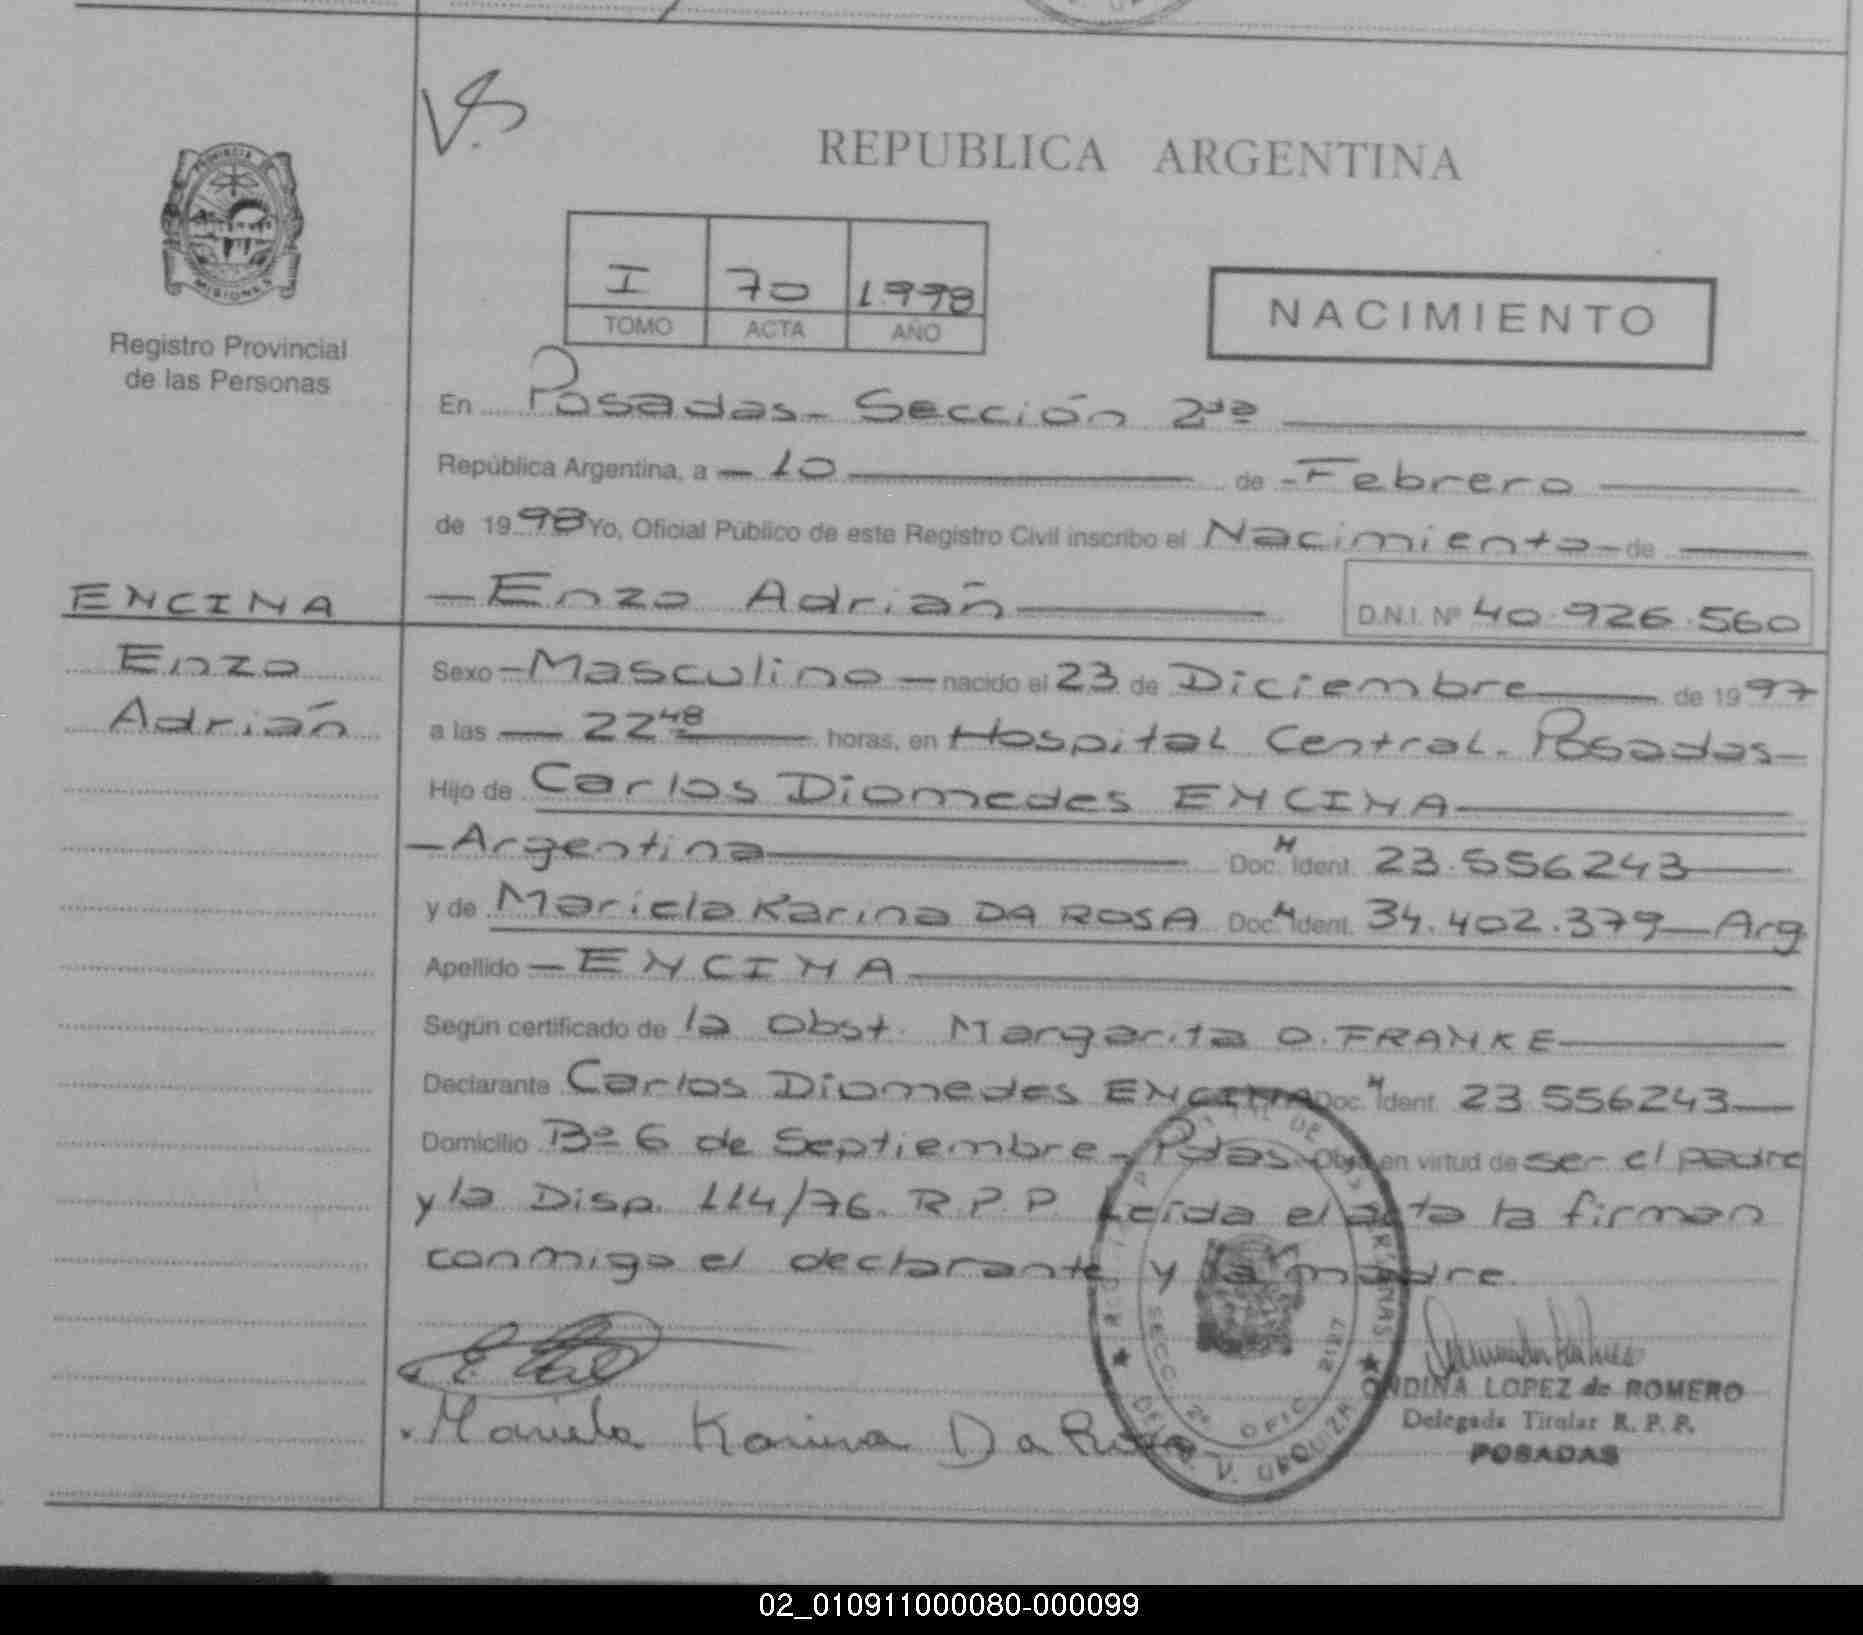 REPUBLICA ARGENTINA
PROVINCIA
MISIONES
Registro Provincial
de las Personas
I 70 1998
TOMO ACTA AÑO
NACIMIENTO
En Posadas - Sección 2da
República Argentina, a - 10 de - Febrero
de 1998 Yo, Oficial Público de este Registro Civil inscribo el Nacimiento - de
ENCINA
- Enzo Adrián D.N.I. Nº 40.926.560
Enzo
Adrián
Sexo - Masculino - nacido el 23 de Diciembre de 1997
a las 22 48 horas, en Hospital Central. Posadas -
Hijo de Carlos Diomedes ENCINA
- Argentina Doc. N Ident. 23.556243
y de Mariela Karina DA ROSA Doc. N Ident. 34.402.379 - Arg
Apellido - ENCINA
Según certificado de la Obst. Margarita O. FRANKE
Declarante Carlos Diomedes ENCINA Doc. N Ident. 23 556243
Domicilio Bº 6 de Septiembre - Pdas. Obra en virtud de ser el padre
y la Disp. 114/76. R.P.P. Leída el acta la firman
conmigo el declarante y la madre.
Mariela Karina Da Rosa
SECC. 2ª OFIC. 2127
V. URQUIZA
ONDINA LOPEZ de ROMERO
Delegada Titular R. P. P.
POSADAS
02_010911000080-000099